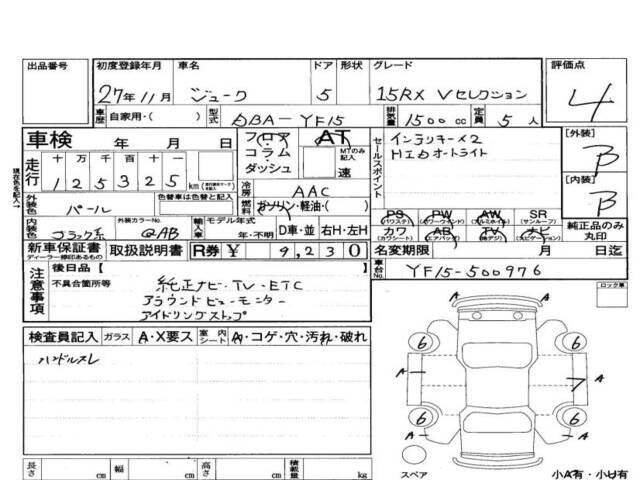 出品番号 初度登録年月 車名 ドア 形状 グレード 評価点
27年11月 ジューク 5 15RX Vセレクション 4
車歴 自家用・( ) 型式 DBA-YF15 排気量 1500cc 定員 5人
車検 年 月 日 フロア コラム・ダッシュ AT MTのみ記入 速
走行 十 万 千 百 十
125325 km
現在色を記入→
外装色 パール 色替車は色替と記入
冷房 AAC
燃料 ガソリン・軽油・( )
内装色 ブラック系 外装カラーNo. QAB 輸入車 モデル年式 年・不明 D車・並 右H・左H
セールスポイント
インテリキー×2
HIDオートライト
[外装] B
[内装] B
PS (パワステ) PW (パワーウィンド) AW (アルミホイル) SR (サンルーフ)
カワ (カワシート) AB (エアバッグ) TV (地デジ) ナビ (ナビゲーション)
純正品のみ丸印
新車保証書 ディーラー捺印あるもの 取扱説明書 R券 ¥ 9,230 名変期限 月 日迄
車台No. YF15-500976
注意事項 後日品【 】
不具合箇所等 純正ナビ・TV・ETC
アラウンドビューモニター
アイドリングストップ
ロック車
検査員記入 ガラス A・X要ス 室内シート A・コゲ・穴・汚れ・破れ
ハンドルスレ
A
6 6
A 7 A
6 6
A A
スペア 小A有・小U有
長さ cm 幅 cm 高さ cm 積載量 kg